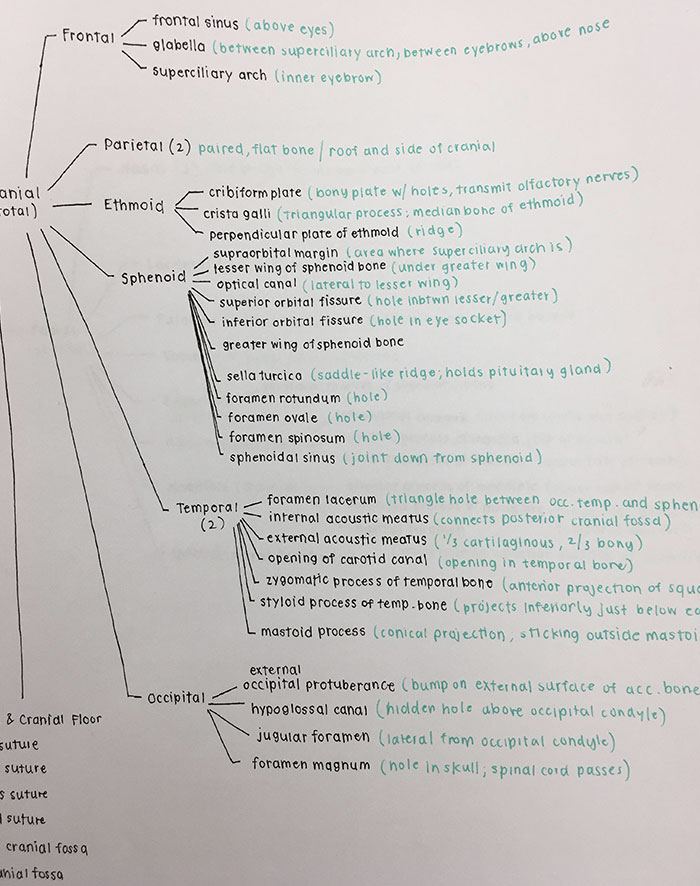 frontal sinus (above eyes)
Frontal
glabella (between superciliary arch, between eyebrows, above nose
superciliary arch (inner eyebrow)
Parietal (2) paired, flat bone / roof and side of cranial
anial
otal)
Ethmoid
cribiform plate (bony plate w/ holes, transmit olfactory nerves)
crista galli (triangular process; median bone of ethmoid)
perpendicular plate of ethmoid (ridge)
Sphenoid
supraorbital margin (area where superciliary arch is)
lesser wing of sphenoid bone (under greater wing)
optical canal (lateral to lesser wing)
superior orbital fissure (hole inbtwn lesser/greater)
inferior orbital fissure (hole in eye socket)
greater wing of sphenoid bone
sella turcica (saddle-like ridge; holds pituitary gland)
foramen rotundum (hole)
foramen ovale (hole)
foramen spinosum (hole)
sphenoidal sinus (joint down from sphenoid)
Temporal
(2)
foramen lacerum (triangle hole between occ. temp. and sphen
internal acoustic meatus (connects posterior cranial fossa)
external acoustic meatus (1/3 cartilaginous, 2/3 bony)
opening of carotid canal (opening in temporal bone)
zygomatic process of temporal bone (anterior projection of squa
styloid process of temp. bone (projects inferiorly just below ea
mastoid process (conical projection, sticking outside mastoi
Occipital
external
occipital protuberance (bump on external surface of acc. bone
hypoglossal canal (hidden hole above occipital condyle)
jugular foramen (lateral from occipital condyle)
foramen magnum (hole in skull; spinal cord passes)
& Cranial Floor
suture
suture
s suture
l suture
cranial fossa
anial fossa